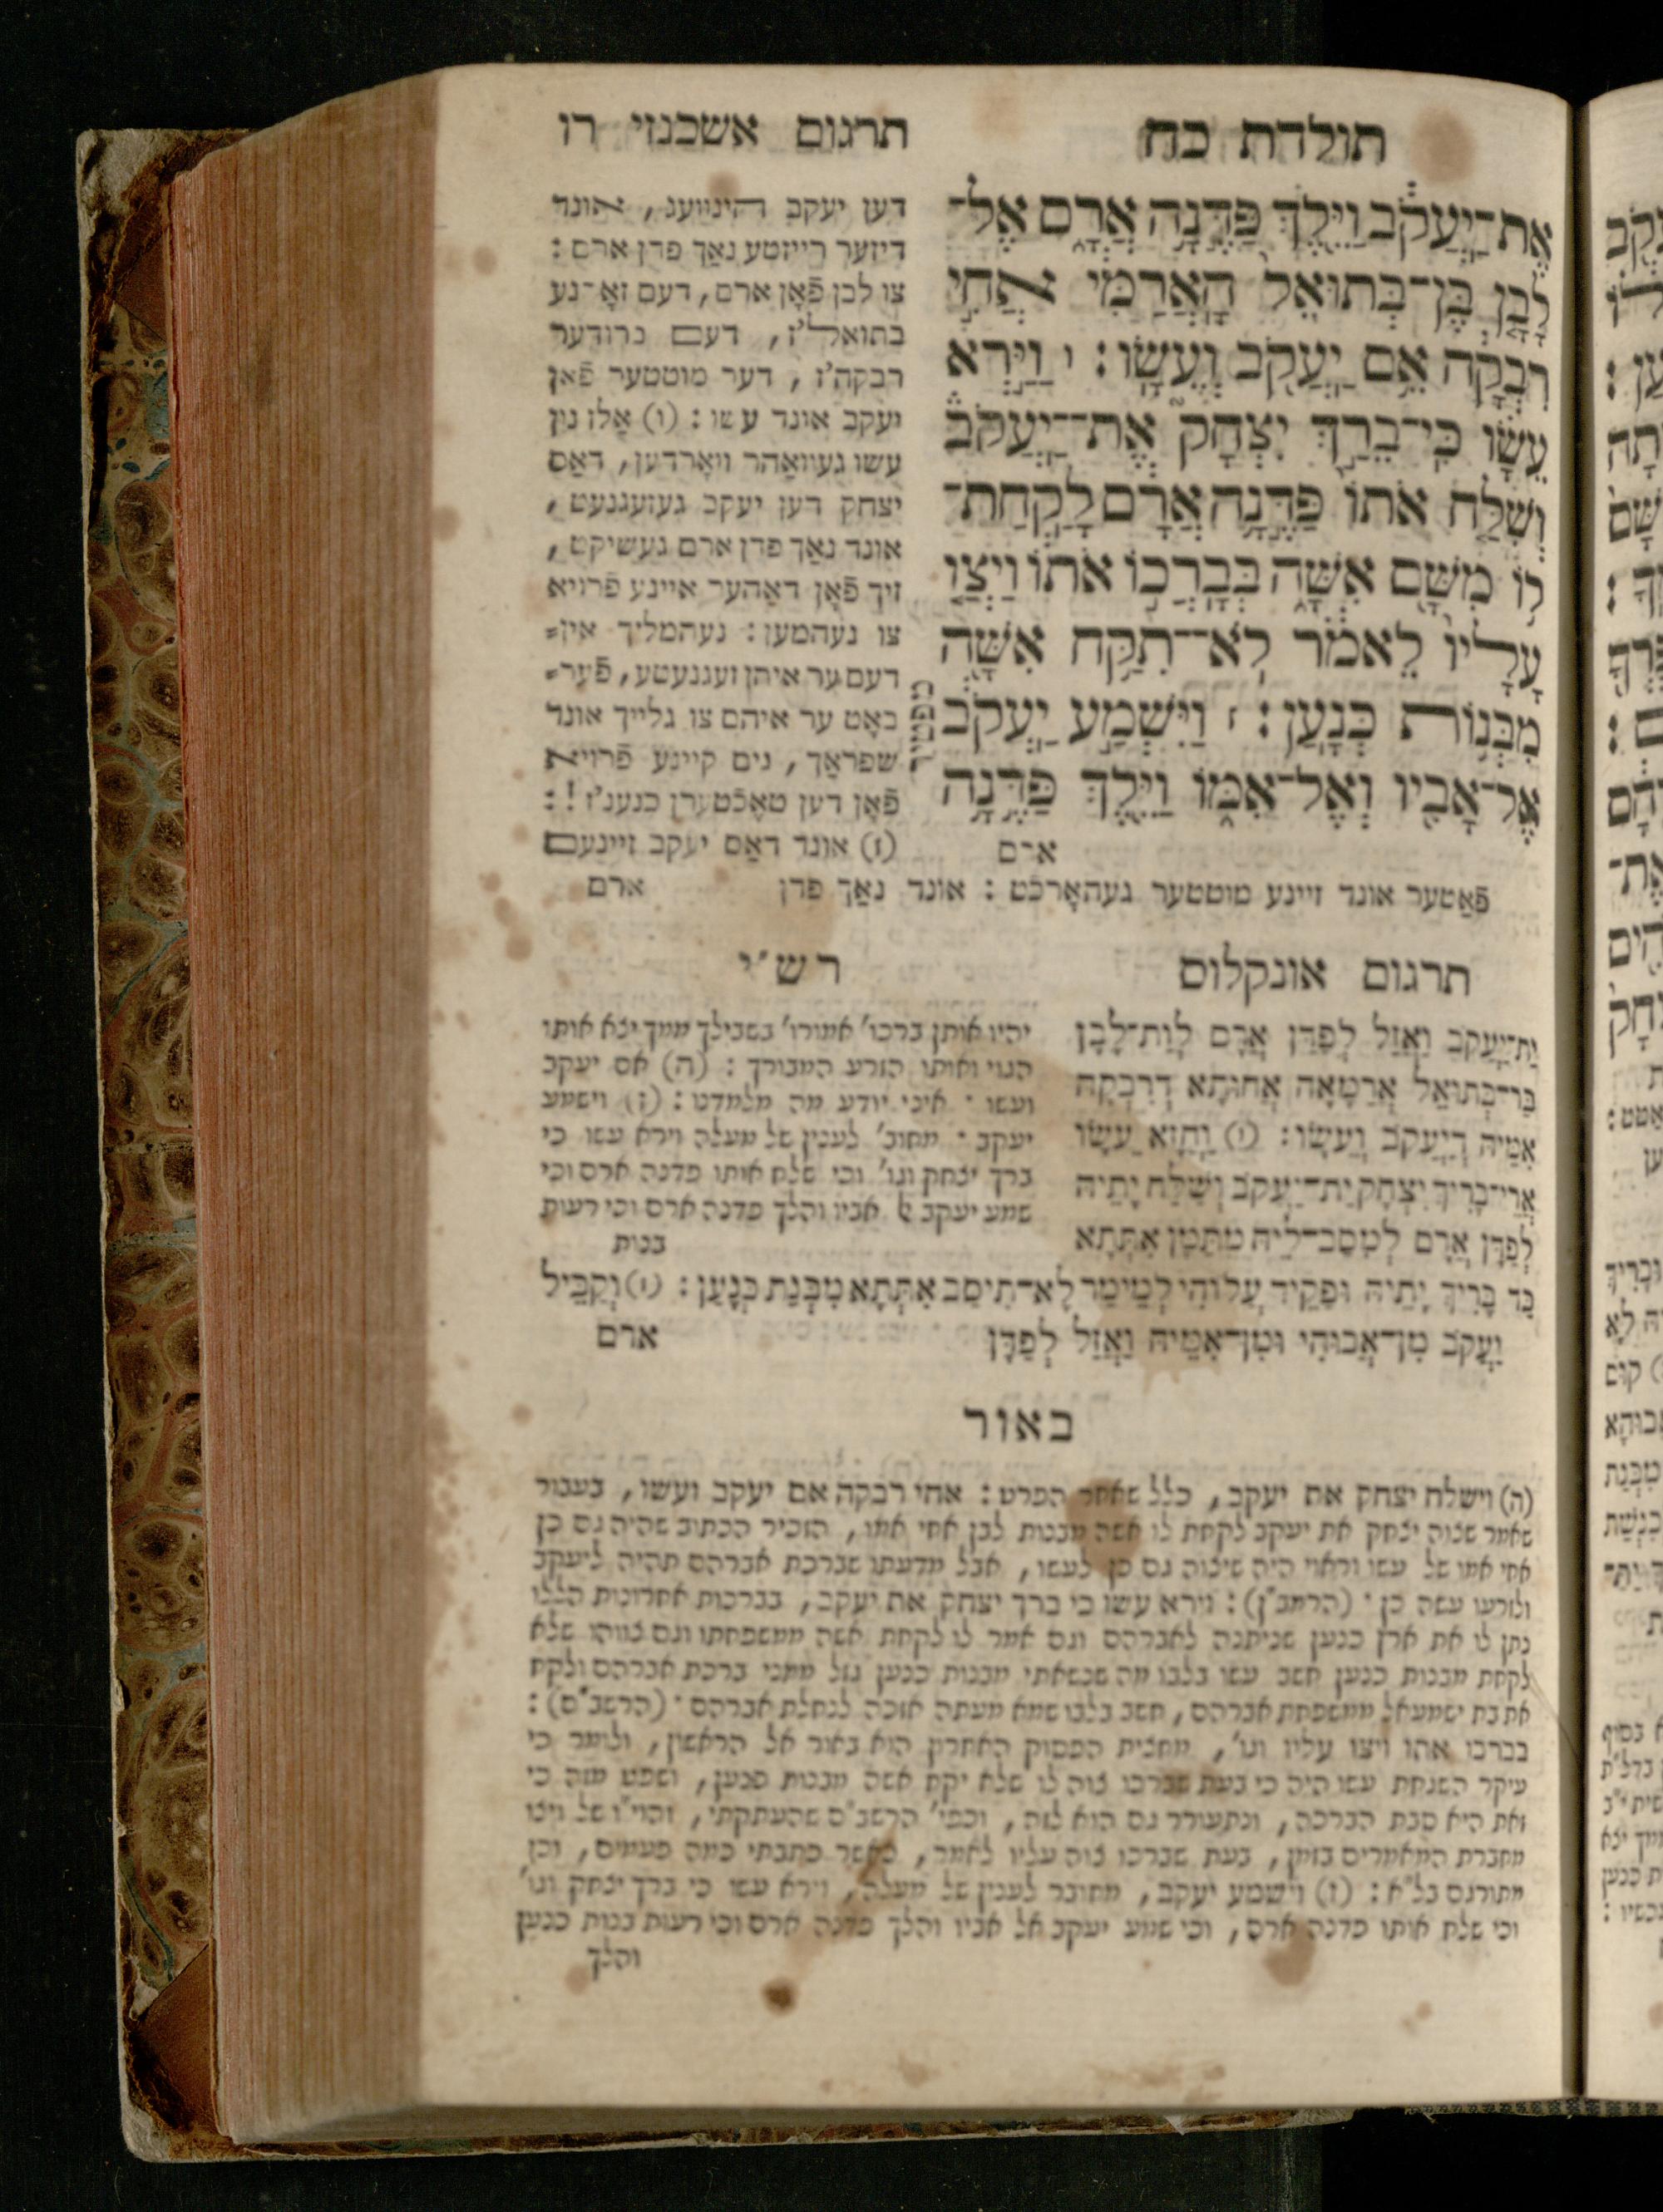 תולדת כח
אֶת־יַעֲקֹב וַיֵּלֶךְ פַּדֶּנָה אֲרָם אֶל־
לָבָן בֶּן־בְּתוּאֵל הָאֲרַמִּי אֲחִי
רִבְקָה אֵם יַעֲקֹב וְעֵשָׂו: ו וַיַּרְא
עֵשָׂו כִּי־בֵרַךְ יִצְחָק אֶת־יַעֲקֹב
וְשִׁלַּח אֹתוֹ פַּדֶּנָה אֲרָם לָקַחַת־
לוֹ מִשָּׁם אִשָּׁה בְּבָרֲכוֹ אֹתוֹ וַיְצַו
עָלָיו לֵאמֹר לֹא־תִקַּח אִשָּׁה
מִבְּנוֹת כְּנָעַן: ז וַיִּשְׁמַע יַעֲקֹב
מפטיר
אֶל־אָבִיו וְאֶל־אִמּוֹ וַיֵּלֶךְ פַּדֶּנָה
תרגום אשכנזי רו
דען יעקב הינוועג, אונד
דיזער רייזטע נאַך פדן ארם:
צו לבן פֿאָן ארם, דעם זאָ־נע
בתואל'ז, דעם ברודער
רבקה'ז, דער מוטטער פֿאן
יעקב אונד עשו: (ו) אַלז נון
עשו געוואַהר וואָרדען, דאַס
יצחק דען יעקב געזעגנעט,
אונד נאַך פדן ארם געשיקט,
זיך פֿאָן דאַהער איינע פֿרויא
צו נעהמען: נעהמליך אין⸗
דעם ער איהן זעגנעטע, פֿער⸗
באָט ער איהם צו גלייך אונד
שפראַך, נים קיינע פֿרויא
פֿאָן דען טאָכֿטערן כנען'ז!:
(ז) אונד דאַס יעקב זיינעם
פֿאַטער אונד זיינע מוטטער געהאָרכֿט: אונד נאַך פדן ארם
תרגום אונקלוס
יָת־יַעֲקֹב וַאֲזַל לְפַדַּן אֲרָם לְוָת־לָבָן
בַּר־בְּתוּאֵל אֲרַמָּאָה אֲחוּהָא דְרִבְקָה
אִמֵּיהּ דְיַעֲקֹב וְעֵשָׂו: (ו) וַחֲזָא עֵשָׂו
אֲרֵי־בָרִיךְ יִצְחָק יַת־יַעֲקֹב וְשַׁלַּח יָתֵיהּ
לְפַדַּן אֲרָם לְמִסַּב־לֵיהּ מִתַּמָּן אִתְּתָא
כַּד בָּרִיךְ יָתֵיהּ וּפַקֵּיד עֲלוֹהִי לְמֵימַר לָא־תִיסַב אִתְּתָא מִבְּנַת כְּנָעַן: (ז) וְקַבֵּיל
יַעֲקֹב מִן־אֲבוּהִי וּמִן־אִמֵּיהּ וַאֲזַל לְפַדַּן ארם
רש״י
יהיו אותן ברכו' אמורו' בשבילך ממך יצא אותו
הגוי ואותו הזרע המבורך: (ה) אם יעקב
ועשו · איני יודע מה מלמדנו: (ז) וישמע
יעקב · מחוב' לענין של מעלה וירא עשו כי
ברך יצחק וגו' וכי שלח אותו פדנה ארם וכי
שמע יעקב אל אביו והלך פדנה ארם וכי רעות
בנות
באור
(ה) וישלח יצחק את יעקב, כלל שאחר הפרט: אחי רבקה אם יעקב ועשו, בעבור
שאמר שצוה יצחק את יעקב לקחת לו אשה מבנות לבן אחי אמו, הזכיר הכתוב שהיה גם כן
אחי אמו של עשו וראוי היה שיצוה גם כן לעשו, אבל מדעתו שברכת אברהם תהיה ליעקב
ולזרעו עשה כן · (הרמב״ן): וירא עשו כי ברך יצחק את יעקב, בברכות אחרונות הללו
נתן לו את ארץ כנען שניתנה לאברהם וגם אמר לו לקחת אשה ממשפחתו וגם צוהו שלא
לקחת מבנות כנען חשב עשו בלבו מה שנשאתי מבנות כנען גזל ממני ברכת אברהם ולקח
את בת ישמעאל ממשפחת אברהם, חשב בלבו שמא מעתה אזכה לנחלת אברהם · (הרשב״ם):
בברכו אתו ויצו עליו וגו', מחצית הפסוק האחרון הוא באור אל הראשון, ולומר כי
עיקר השגחת עשו היה כי בעת שברכו צוה לו שלא יקח אשה מבנות כנען, ושפט מזה כי
זאת היא סבת הברכה, ונתעורר גם הוא לזה, וכפי' הרשב״ם שהעתקתי, והוי״ו של ויצו
מחברת המאמרים בזמן, בעת שברכו צוה עליו לאמר, כאשר כתבתי כמה פעמים, וכן
מתורגם בל״א: (ז) וישמע יעקב, מחובר לענין של מעלה, וירא עשו כי ברך יצחק וגו'
וכי שלח אותו פדנה ארם, וכי שמע יעקב אל אביו והלך פדנה ארם וכי רעות בנות כנען
והלך